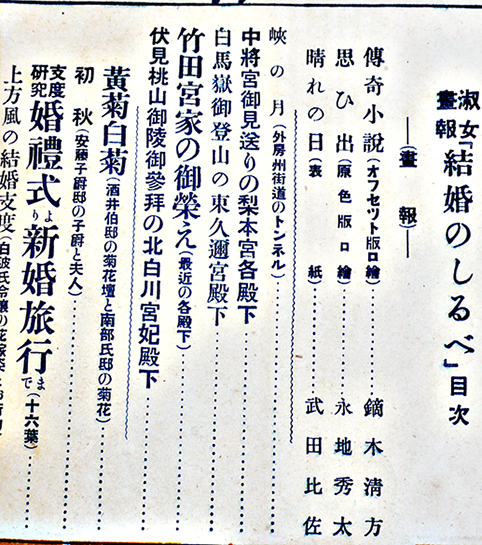 淑女畫報「結婚のしるべ」目次
―(畫報)―
傳奇小說(オフセツト版口繪)…………鏑木清方
思ひ出(原色版口繪)…………永地秀太
晴れの日(表紙)…………武田比佐
峽の月(外房州街道のトンネル)…………
中將宮御見送りの梨本宮各殿下
白馬嶽御登山の東久邇宮殿下…………
竹田宮家の御榮え(最近の各殿下)…………
伏見桃山御陵御參拜の北白川宮妃殿下
黃菊白菊(酒井伯邸の菊花壇と南部氏邸の菊花)
初秋(安藤子爵邸の子爵と夫人)…………
支度研究婚禮式より新婚旅行まで(十六葉)…………
上方風の結婚支度